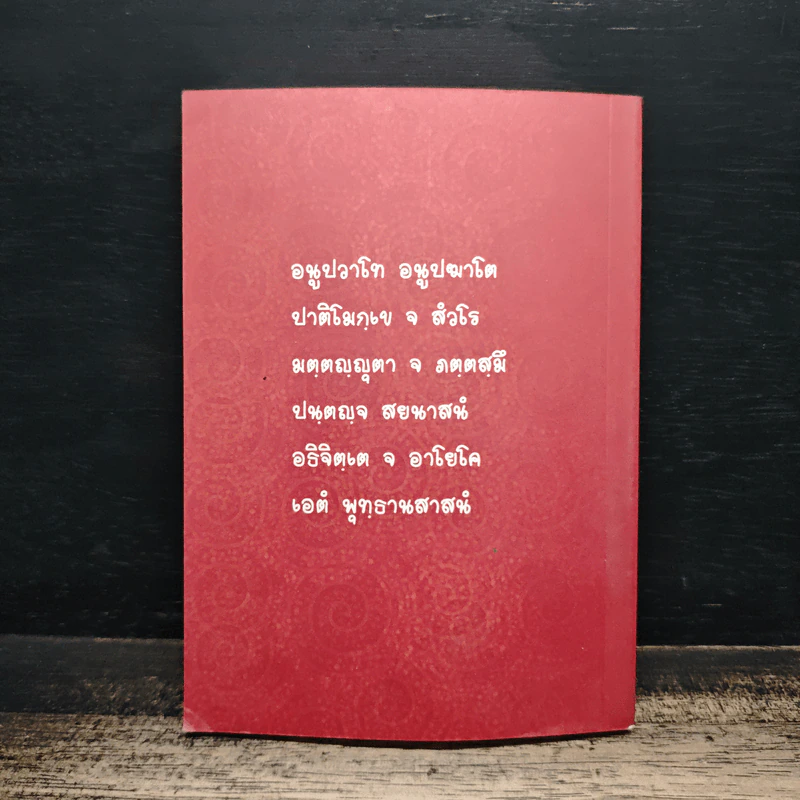 อนูปวาโท อนูปฆาโต
ปาติโมกฺเข จ สํวโร
มตฺตญฺญุตา จ ภตฺตสฺมึ
ปนฺตญฺจ สยนาสนํ
อธิจิตฺเต จ อาโยโค
เอตํ พุทฺธานสาสนํ